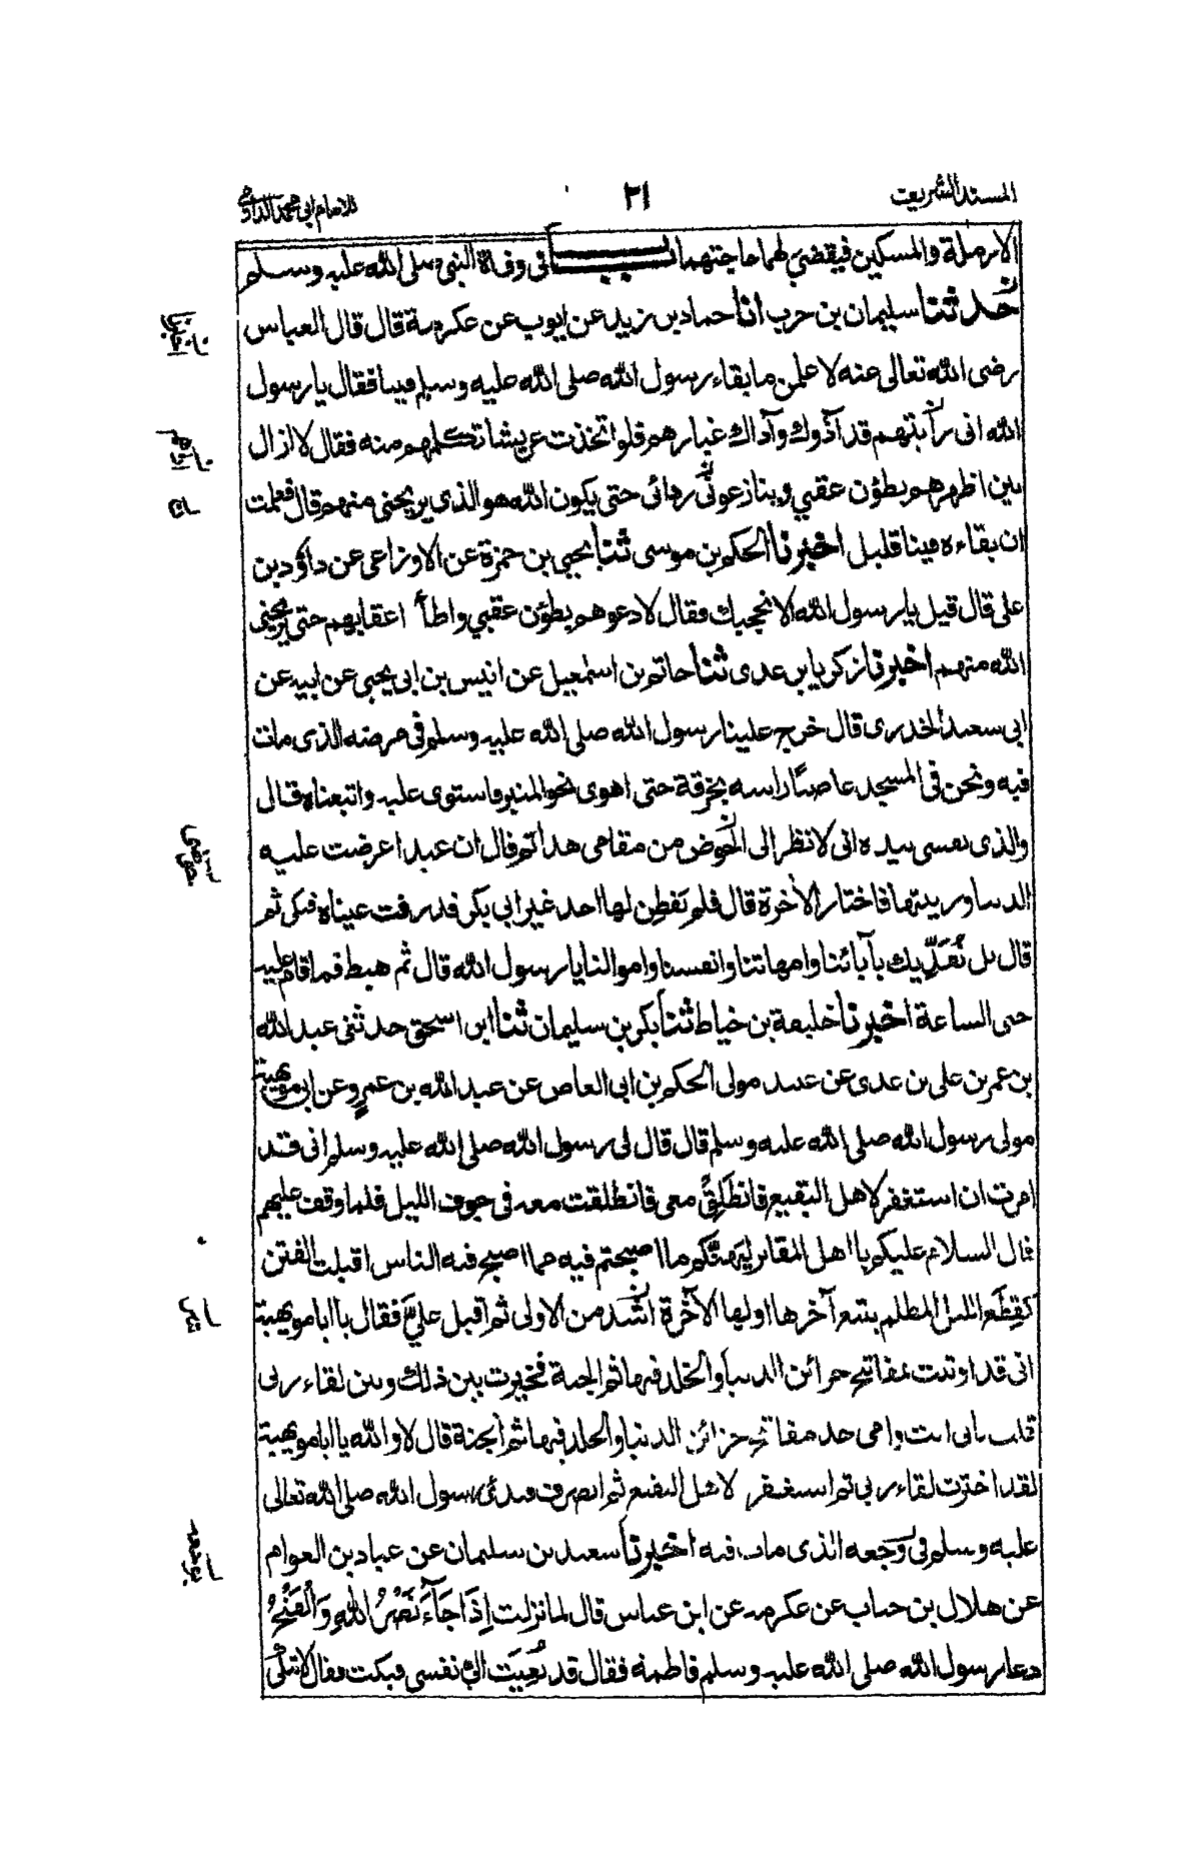 المسند الشريف ٢١ للامام ابى محمد الدارمى
الارملة والمسكين فيقضى لهما حاجتهما باب فى وفاة النبى صلى الله عليه وسلم
حدثنا سليمان بن حرب انا حماد بن زيد عن ايوب عن عكرمة قال قال العباس
رضى الله تعالى عنه لاعلمن ما بقاء رسول الله صلى الله عليه وسلم فينا فقال يا رسول
الله انى رأيتهم قد آذوك وآذاك غبارهم فلو اتخذت عريشا تكلمهم منه فقال لا ازال
بين اظهرهم يطؤن عقبي وينازعونى ردائى حتى يكون الله هو الذى يريحنى منهم قال فعلمت
ان بقاءه فينا قليل اخبرنا الحكم بن موسى ثنا يحيى بن حمزة عن الاوزاعى عن داؤد بن
على قال قيل يا رسول الله الا نحجبك فقال لا دعوهم يطؤن عقبي واطأ اعقابهم حتى يريحنى
الله منهم اخبرنا زكريا بن عدى ثنا حاتم بن اسمعيل عن انيس بن ابى يحيى عن ابيه عن
ابى سعيد الخدرى قال خرج علينا رسول الله صلى الله عليه وسلم فى مرضه الذى مات
فيه ونحن فى المسجد عاصبًا راسه بخرقة حتى اهوى نحو المنبر فاستوى عليه واتبعناه قال
والذى نفسى بيده انى لانظر الى الحوض من مقامى هذا ثم قال ان عبدا عرضت عليه
الدنيا وزينتها فاختار الآخرة قال فلم يفطن لها احد غير ابى بكر فذرفت عيناه فبكى ثم
قال بل نُفَدِّيك بآبائنا وامهاتنا وانفسنا واموالنا يا رسول الله قال ثم هبط فما قام عليه
حتى الساعة اخبرنا خليفة بن خياط ثنا بكر بن سليمان ثنا ابن اسحق حدثنى عبد الله
بن عمر بن على بن عدى عن عبيد مولى الحكم بن ابى العاص عن عبد الله بن عمرٍو عن ابى مويهبة
مولى رسول الله صلى الله عليه وسلم قال قال لى رسول الله صلى الله عليه وسلم انى قد
امرت ان استغفر لاهل البقيع فانطلق معى فانطلقت معه فى جوف الليل فلما وقف عليهم
قال السلام عليكم يا اهل المقابر ليهنكم ما اصبحتم فيه مما اصبح فيه الناس اقبلت الفتن
كقِطَع الليل المظلم يتبع آخرها اولها الآخرة اشد من الاولى ثم اقبل علىّ فقال يا ابا مويهبة
انى قد اوتيت بمفاتيح خزائن الدنيا والخلد فيها ثم الجنة فخيرت بين ذلك وبين لقاء ربى
قلت بابى انت وامى خذ مفاتيح خزائن الدنيا والخلد فيها ثم الجنة قال لا والله يا ابا مويهبة
لقد اخترت لقاء ربى ثم استغفر لاهل البقيع ثم انصرف فبدئ رسول الله صلى الله تعالى
عليه وسلم فى وجعه الذى مات فيه اخبرنا سعيد بن سليمان عن عباد بن العوام
عن هلال بن خباب عن عكرمة عن ابن عباس قال لما نزلت اِذَا جَآءَ نَصْرُ اللهِ وَالْفَتْحُ
دعا رسول الله صلى الله عليه وسلم فاطمة فقال قد نُعِيَت الىّ نفسى فبكت فقال لا تبكى